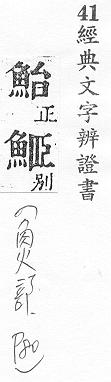 41 經典文字辨證書
鮐正
別
(魚部 P80)